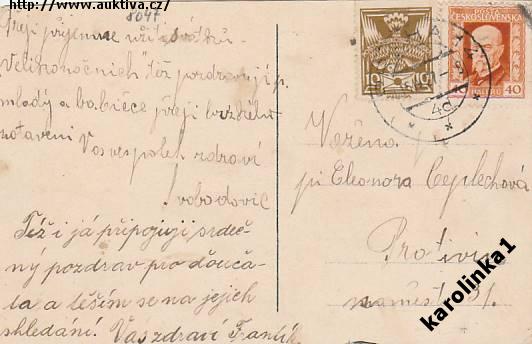 http://www.auktiva.cz/
8047
Přeji příjemné užití svátků
Velikonočních též pozdravuji p.
mladý a babičce přeji brzkého
zotavení Vás vespolek zdraví
Svobodovic
Též i já připojuji srdeč-
ný pozdrav pro
a těším se na jejich
shledání. Vás zdraví Frantík
POŠTA
ČESKOSLOVENSKÁ
10 10
40
4d
Vážená
pí Eleonora Ceplechová
Protivín
náměstí 31.
karolinka1